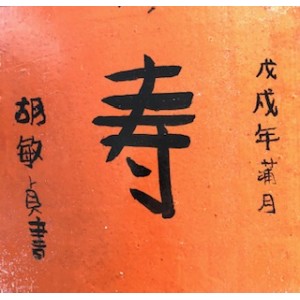 戊戌年蒲月
寿
胡敏贞書